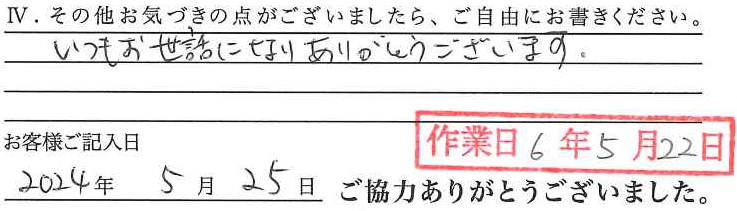 Ⅳ．その他お気づきの点がございましたら、ご自由にお書きください。
いつもお世話になりありがとうございます。
お客様ご記入日
作業日 6年5月22日
2024年 5月25日 ご協力ありがとうございました。